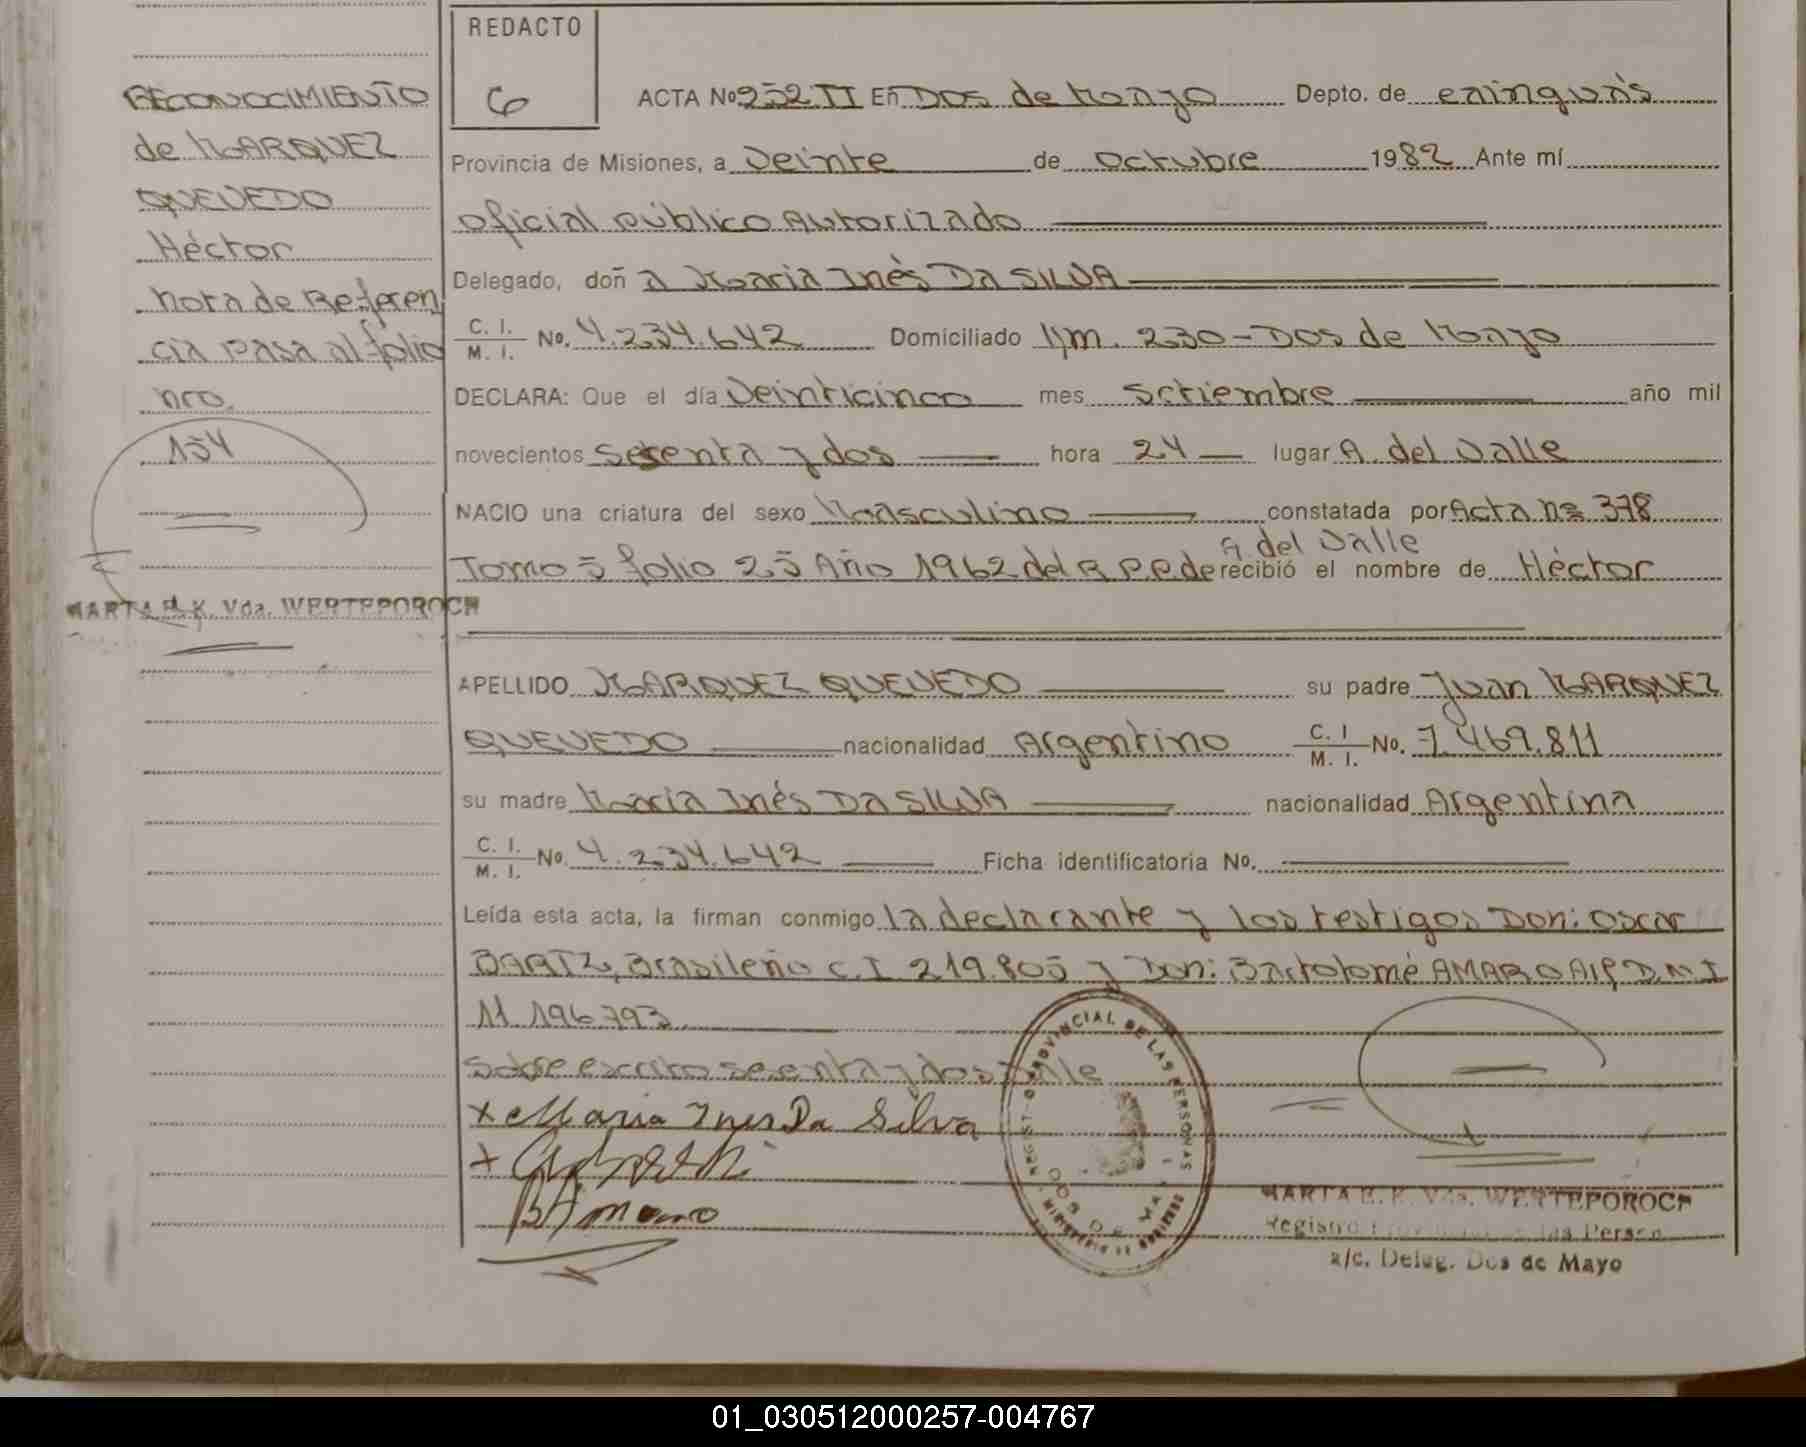 REDACTO
6
RECONOCIMIENTO
de MARQUEZ
QUEVEDO
Héctor
nota de Referen
cia pasa al folio
nro.
154
MARTA E. K. Vda. WERTEPOROCH
ACTA No 252 II En Dos de Mayo Depto. de cainguás
Provincia de Misiones, a Veinte de octubre 1982 Ante mí
oficial público Autorizado
Delegado, doñ a María Inés Da SILVA
C. I. M. I. No. 4.234.642 Domiciliado Km. 230-Dos de Mayo
DECLARA: Que el día Veinticinco mes setiembre año mil
novecientos sesenta y dos hora 24 lugar A. del Valle
NACIO una criatura del sexo Masculino constatada por Acta nº 378
A. del Valle
Tomo 5 folio 25 Año 1962 del R.P.P. de recibió el nombre de Héctor
APELLIDO MARQUEZ QUEVEDO su padre Juan MARQUEZ
QUEVEDO nacionalidad Argentino C. I M. I. No. 7.469.811
su madre María Inés Da SILVA nacionalidad Argentina
C. I. M. I. No. 4.234.642 Ficha identificatoria No.
Leída esta acta, la firman conmigo la declarante y los testigos Don: Oscar
BARTZ, Brasileño C.I 219.805 y Don: Bartolomé AMARO Arg D.N.I
11.196.793
Sobre escrito sesenta y dos Vale
x Maria Ines Da Silva
+
B Amaro
REGIST. PROVINCIAL DE LAS PERSONAS
DOS DE MAYO
MINISTERIO DE GOBIERNO
MARTA E. K. Vda. WERTEPOROCH
Registro Provincial de las Person
a/c. Deleg. Dos de Mayo
01_030512000257-004767